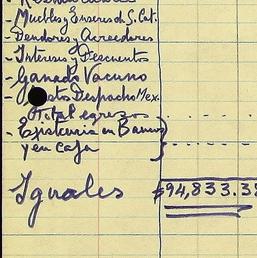 - Muebles y Enseres de S. Cat.
- Deudores y Acreedores
- Intereses y Descuentos
- Ganado Vacuno
- Despacho Mex.
Total egresos . . . .
- Existencia en Bancos
y en Caja . . . . .
Iguales $94,833.38